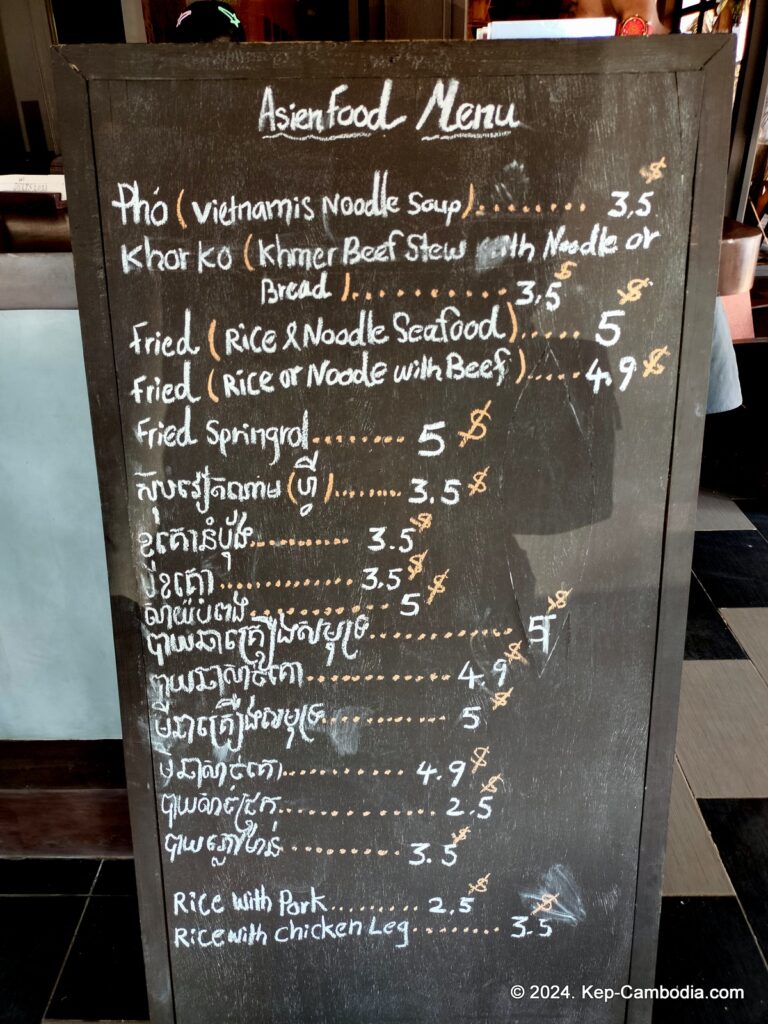 Asien Food Menu
Phó (Vietnamis Noodle Soup)........ 3,5$
Khor Ko (Khmer Beef Stew with Noodle or
Bread )........... 3,5$
Fried (Rice & Noodle Seafood)..... 5$
Fried (Rice or Noode with Beef )..... 4.9$
Fried Springrol........ 5$
ស៊ុបវៀតណាម (ហ្វឺ)........ 3.5$
ខគោនំប៉័ង........... 3.5$
មីខគោ.............. 3.5$
ណាយ៉បំពង............ 5$
បាយឆាគ្រឿងសមុទ្រ............. 5$
បាយឆាសាច់គោ............. 4.9$
មីឆាគ្រឿងសមុទ្រ............ 5$
មីឆាសាច់គោ........... 4.9$
បាយសាច់ជ្រូក............... 2.5$
បាយភ្លៅមាន់........... 3.5$
Rice with Pork......... 2.5$
Rice with Chicken Leg........ 3.5$
© 2024. Kep-Cambodia.com